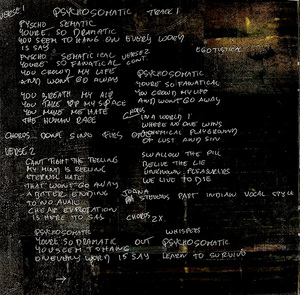 VERSE 1 PSYCHOSOMATIC TRACK 1
PYSCHO SEMATIC
YOURE SO DRAMATIC
YOU SEEM TO HANG ON EVERY WORD
IS SAY
PYSCHO SEMATICICAL VERSE 2 EGOTISTICAL
YOURE SO FANATICAL CONT.
YOU CROWD MY LIFE PSYCHOSOMATIC
AND WONT GO AWAY YOU'RE SO FANATICAL
YOU CROWD MY LIFE
YOU BREATH MY AIR AND WONT GO AWAY
YOU TAKE UP MY SPACE
YOU MAKE ME HATE CHORUS
THE HUMAN RACE IN A WORLD
WHERE NO ONE WINS
CHORUS DONE PLAYGROUND
OF LUST AND SIN
VERSE 2
SWALLOW THE PILL
CANT FIGHT THE FEELING RELIVE THE LIE
MY MIND IS REELING UNKNOWN PLEASURES
ETERNAL HATE WE LIVE TO DIE
THAT WONT GO AWAY
A BITTER ENDING STEREOS PART INDIAN VOCAL STYLE
TO NO AVAIL
IS HERE TO SAY CHORUS 2X
PSYCHOSOMATIC WHISPERS
YOURE SO DRAMATIC OUT PSYCHOSOMATIC
YOU SEEM TO HANG
ON EVERY WORD IS SAY LEARN TO SURVIVE